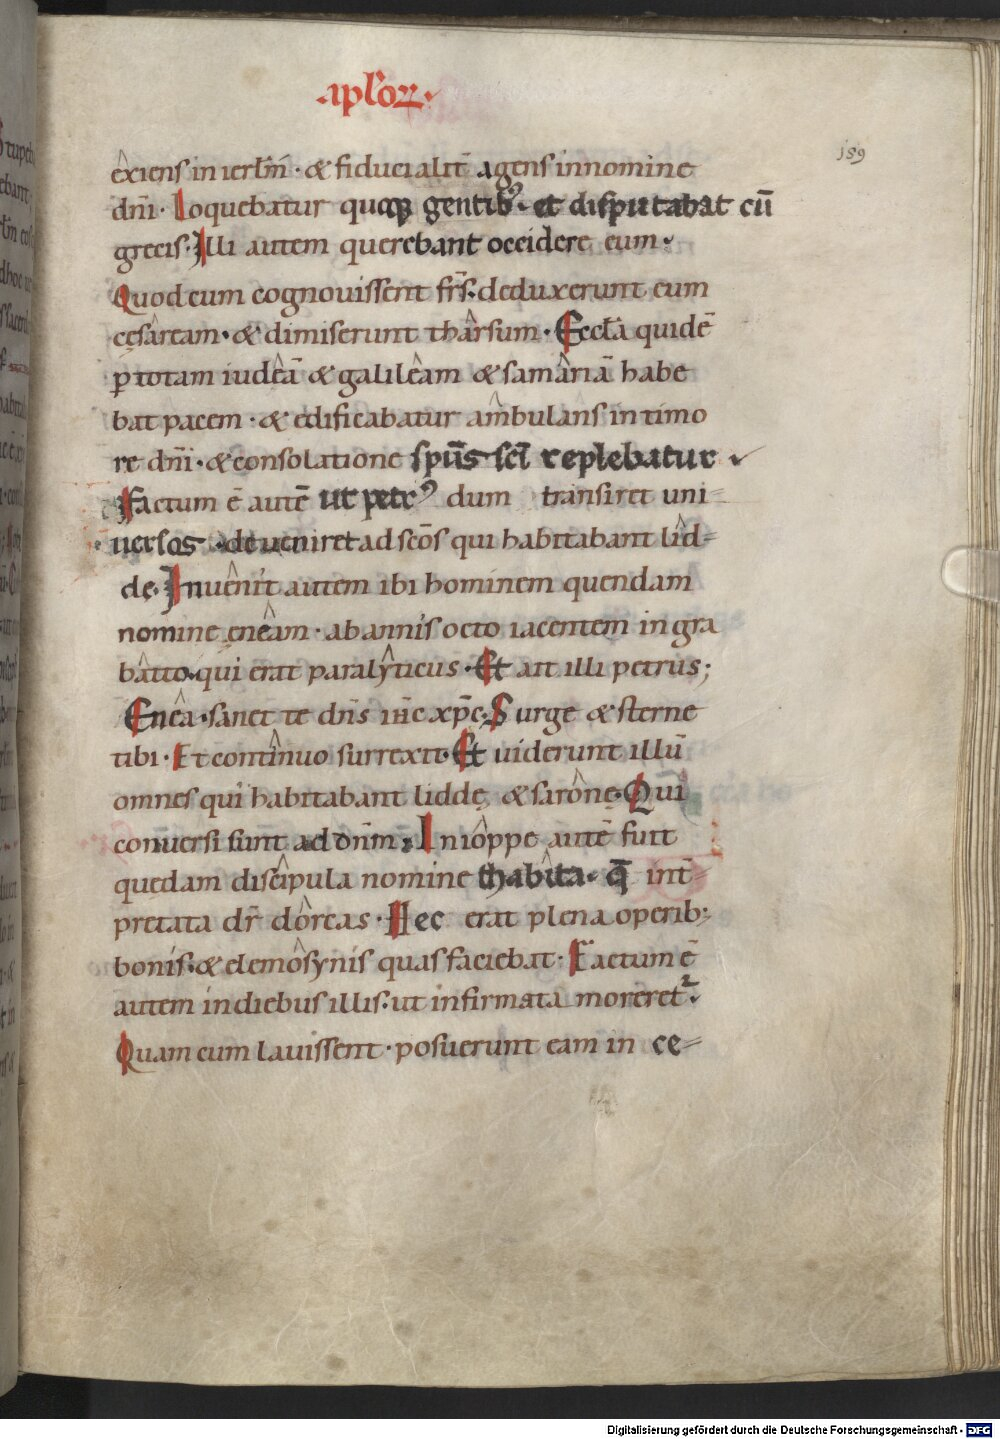 aplőꝝ
189
exiens in ierłm̄ · & fiducialit̄ agens in nomine
dn̄i · Loquebatur quoqꝫ gentibꝰ · et disputabat cū
grecis · Illi autem querebant occidere eum ·
Quod cum cognouissent fr̄s · deduxerunt eum
cęsaream · & dimiserunt tharsum · Eccła quidē
ꝑ totam iudeā & galileam & samariā habe
bat pacem · & edificabatur ambulans in timo
re dn̄i · & consolatione sp̄us sc̄i replebatur ·
Factum ē autē ut petrꝰ dum transiret uni-
uersos · deueniret ad sc̄os qui habitabant lid-
dę · Inuenit autem ibi hominem quendam
nomine ęneam · ab annis octo iacentem in gra
batto · qui erat paralyticus · Et ait illi petrus;
Enea · sanet te dn̄s ih̄c xp̄c · Surge & sterne
tibi · Et continuo surrexit · Et uiderunt illū
omnes qui habitabant liddę & saronę · Qui
conuersi sunt ad dn̄m · In ioppe autē fuit
quedam discipula nomine thabita · q̄ int̄-
pretata dr̄ dorcas · Hec erat plena operib;
bonis · & elemosynis quas faciebat · Factum ē
autem in diebus illis · ut infirmata morereť ·
Quam cum lauissent · posuerunt eam in ce-
Digitalisierung gefördert durch die Deutsche Forschungsgemeinschaft - DFG